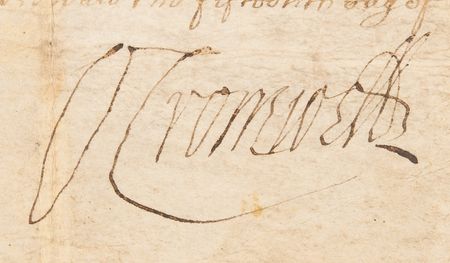 the fifteenth day of
O Cromwell